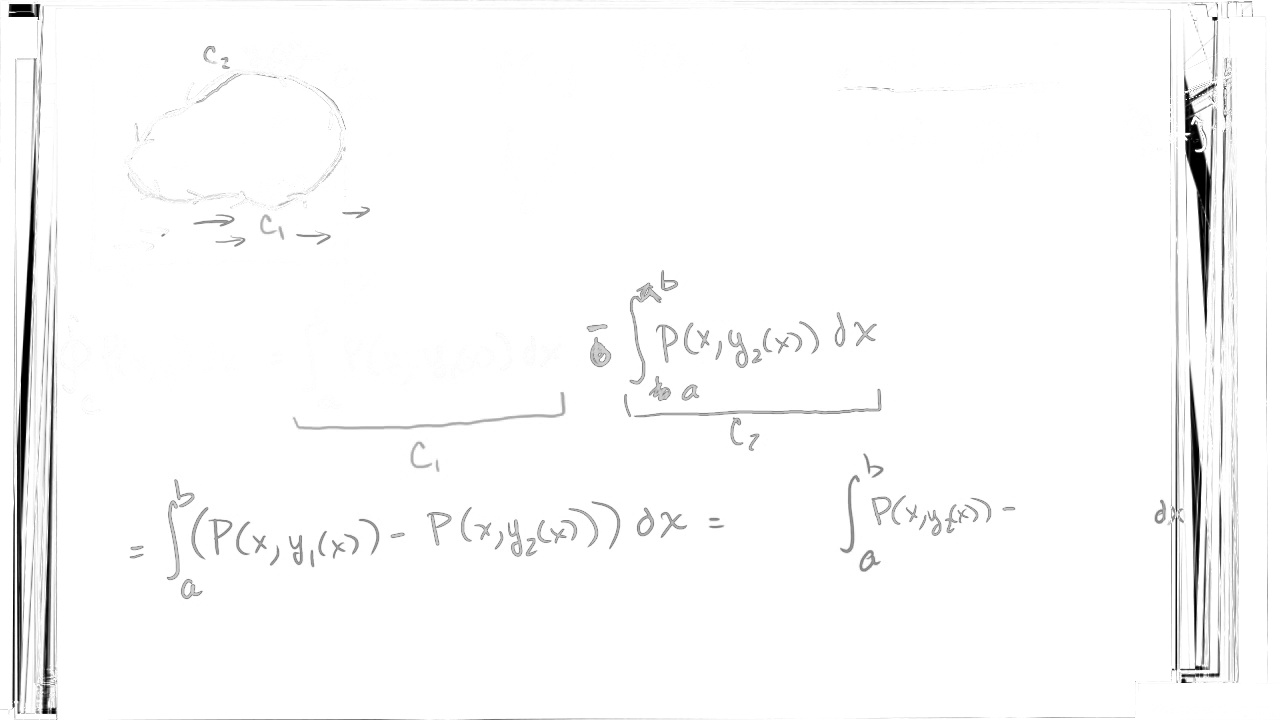 C₂
C₁
− ∫ₐᵇ P(x, y₂(x)) dx
C₁ C₂
= ∫ₐᵇ (P(x, y₁(x)) − P(x, y₂(x))) dx = ∫ₐᵇ P(x, y₂(x)) − dx